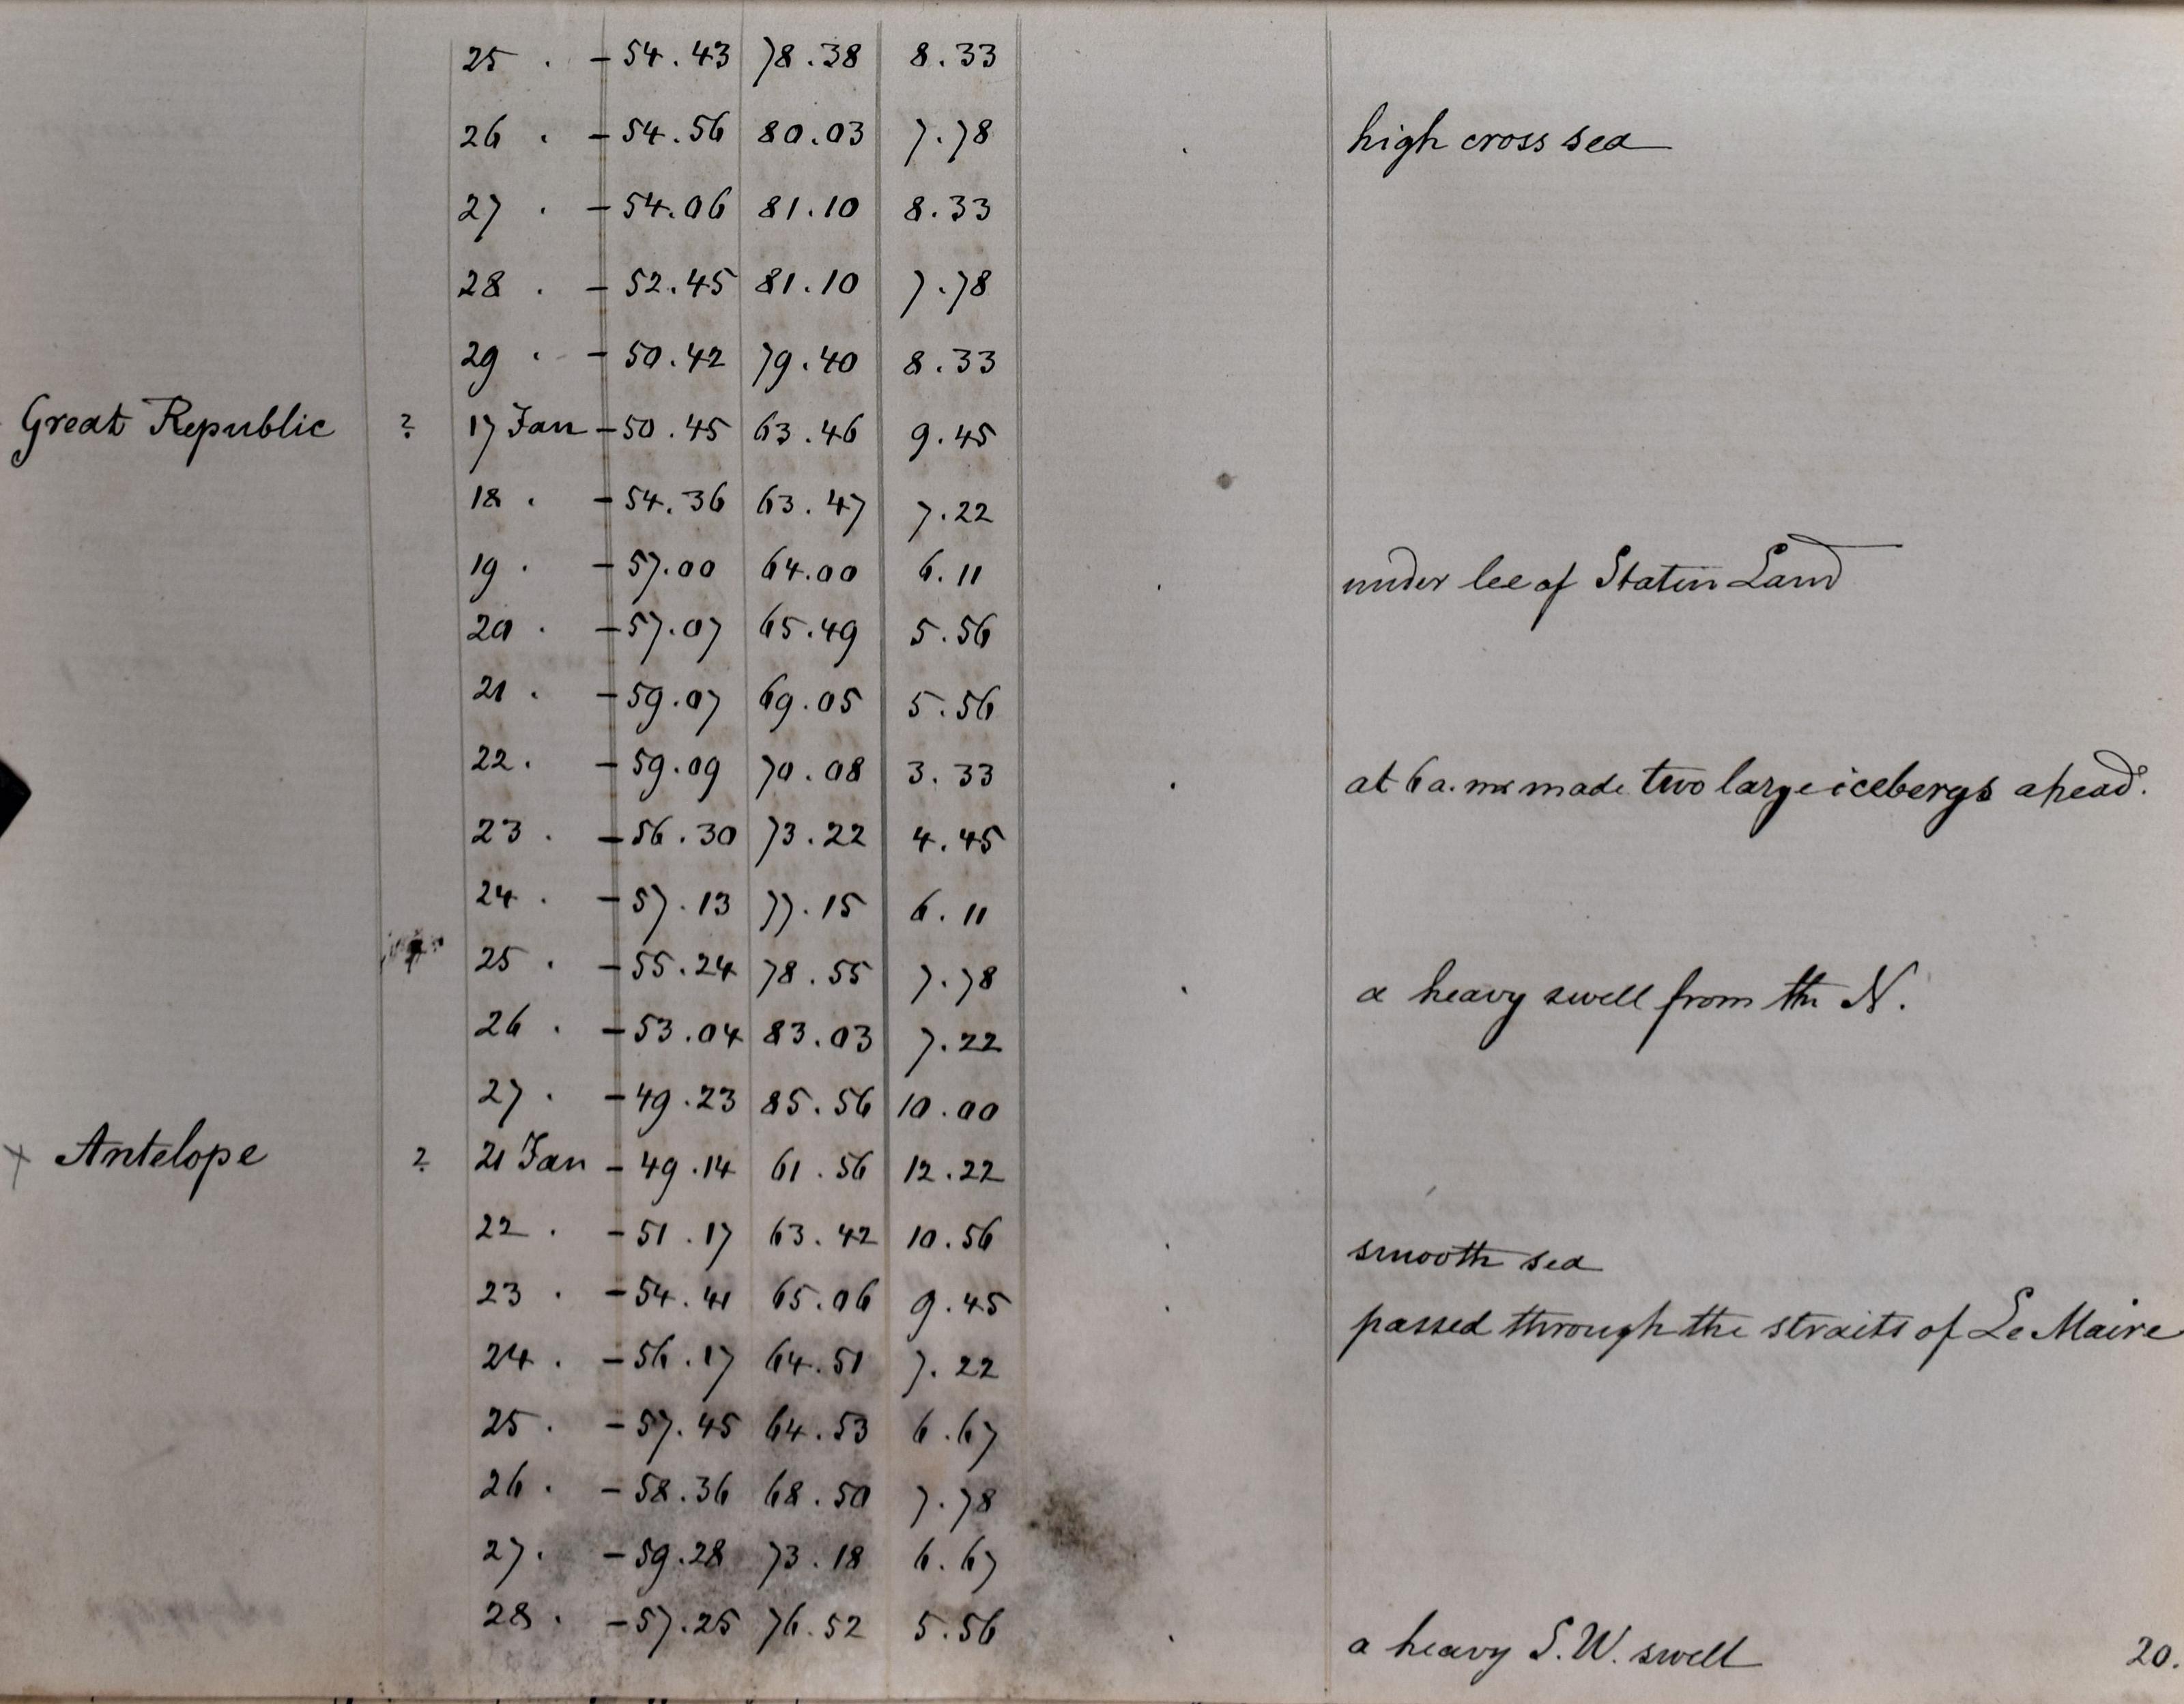 25 . - 54.43 78.38 8.33
26 . - 54.56 80.03 7.78 . high cross sea
27 . - 54.06 81.10 8.33
28 . - 52.45 81.10 7.78
29 . - 50.42 79.40 8.33
Great Republic ? 17 Jan - 50.45 63.46 9.45
18 . - 54.36 63.47 7.22
19 . - 57.00 64.00 6.11 . under lee of Staten Land
20 . - 57.07 65.49 5.56
21 . - 59.07 69.05 5.56
22 . - 59.09 70.08 3.33 . at 6 a.m made two large icebergs ahead.
23 . - 56.30 73.22 4.45
24 . - 57.13 77.15 6.11
25 . - 55.24 78.55 7.78 . a heavy swell from the N.
26 . - 53.04 83.03 7.22
27 . - 49.23 85.56 10.00
x Antelope ? 21 Jan - 49.14 61.56 12.22
22 . - 51.17 63.42 10.56 . smooth sea
23 . - 54.41 65.06 9.45 . passed through the straits of Le Maire
24 . - 56.17 64.51 7.22
25 . - 57.45 64.53 6.67
26 . - 58.36 68.50 7.78
27 . - 59.28 73.18 6.67
28 . - 57.25 76.52 5.56 . a heavy S.W. swell 20.